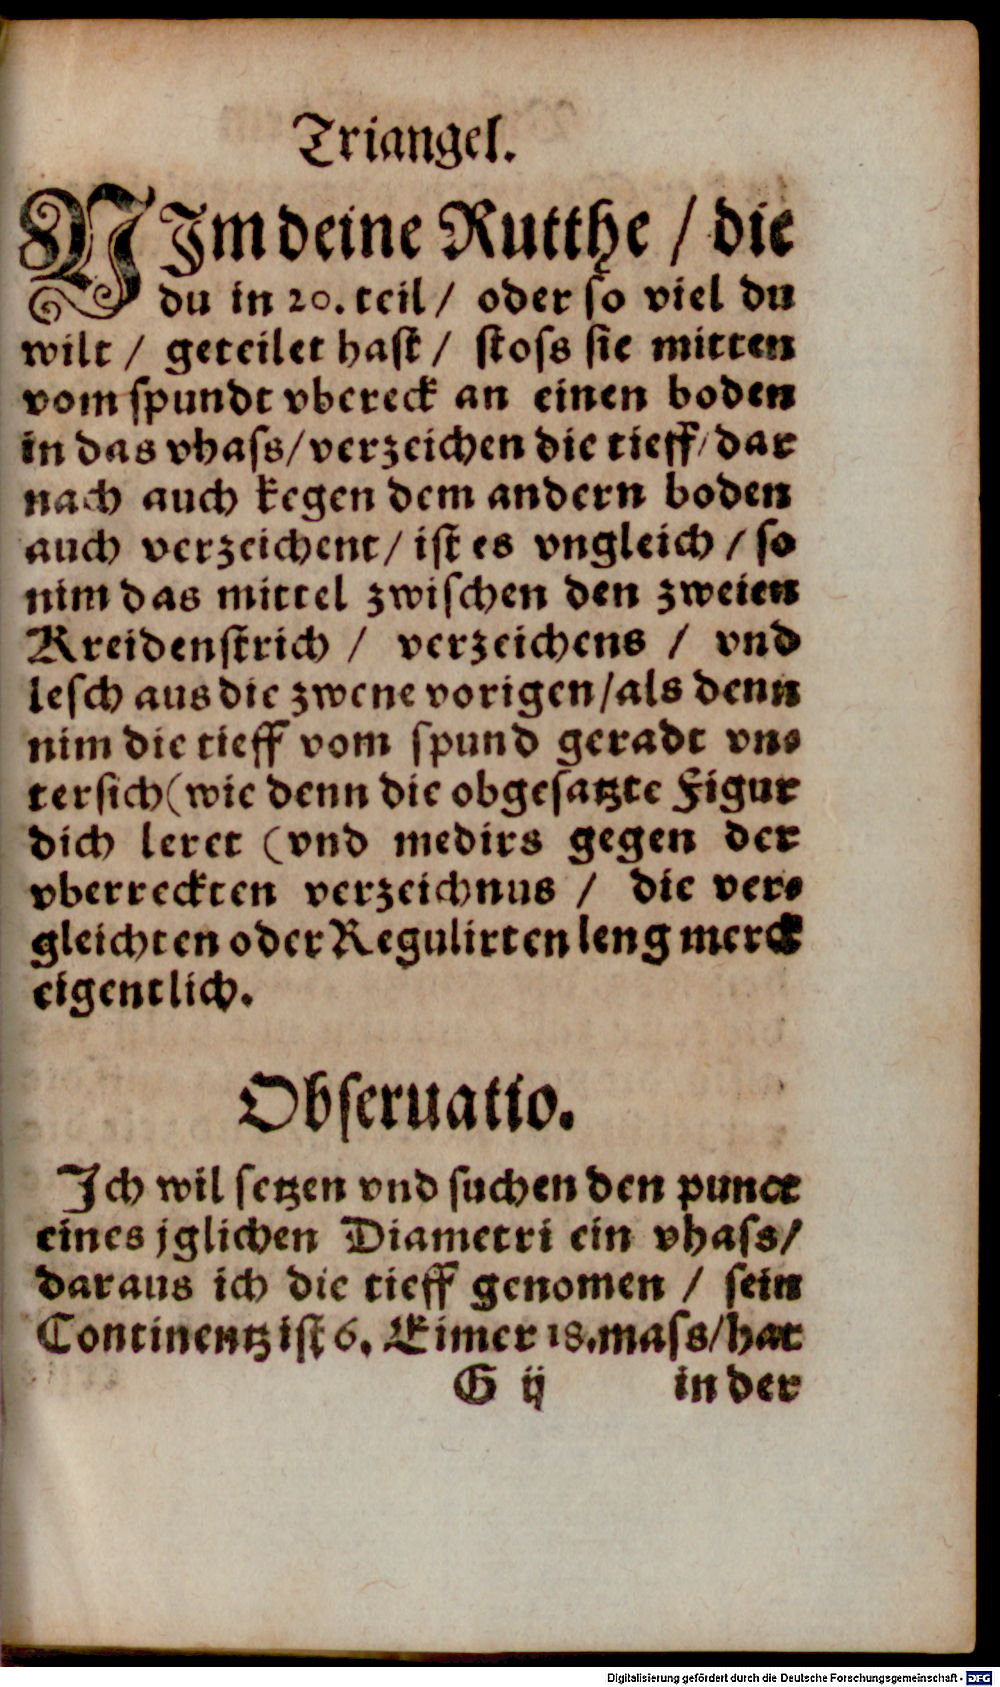 Triangel.
NIm deine Rutthe / die
du in 20. teil / oder so viel du
wilt / geteilet hast / stoss sie mitten
vom spundt vbereck an einen boden
in das vhass/verzeichen die tieff/dar
nach auch kegen dem andern boden
auch verzeichent/ ist es vngleich / so
nim das mittel zwischen den zweien
Kreidenstrich / verzeichens / vnd
lesch aus die zwene vorigen/als denn
nim die tieff vom spund geradt vn⸗
tersich (wie denn die obgesatzte Figur
dich leret (vnd medirs gegen der
vberreckten verzeichnus / die ver⸗
gleichten oder Regulirten leng merck
eigentlich.
Obseruatio.
Ich wil setzen vnd suchen den punct
eines jglichen Diametri ein vhass/
daraus ich die tieff genomen / sein
Continentz ist 6. Eimer 18.mass/hat
G ij in der
Digitalisierung gefördert durch die Deutsche Forschungsgemeinschaft - DFG